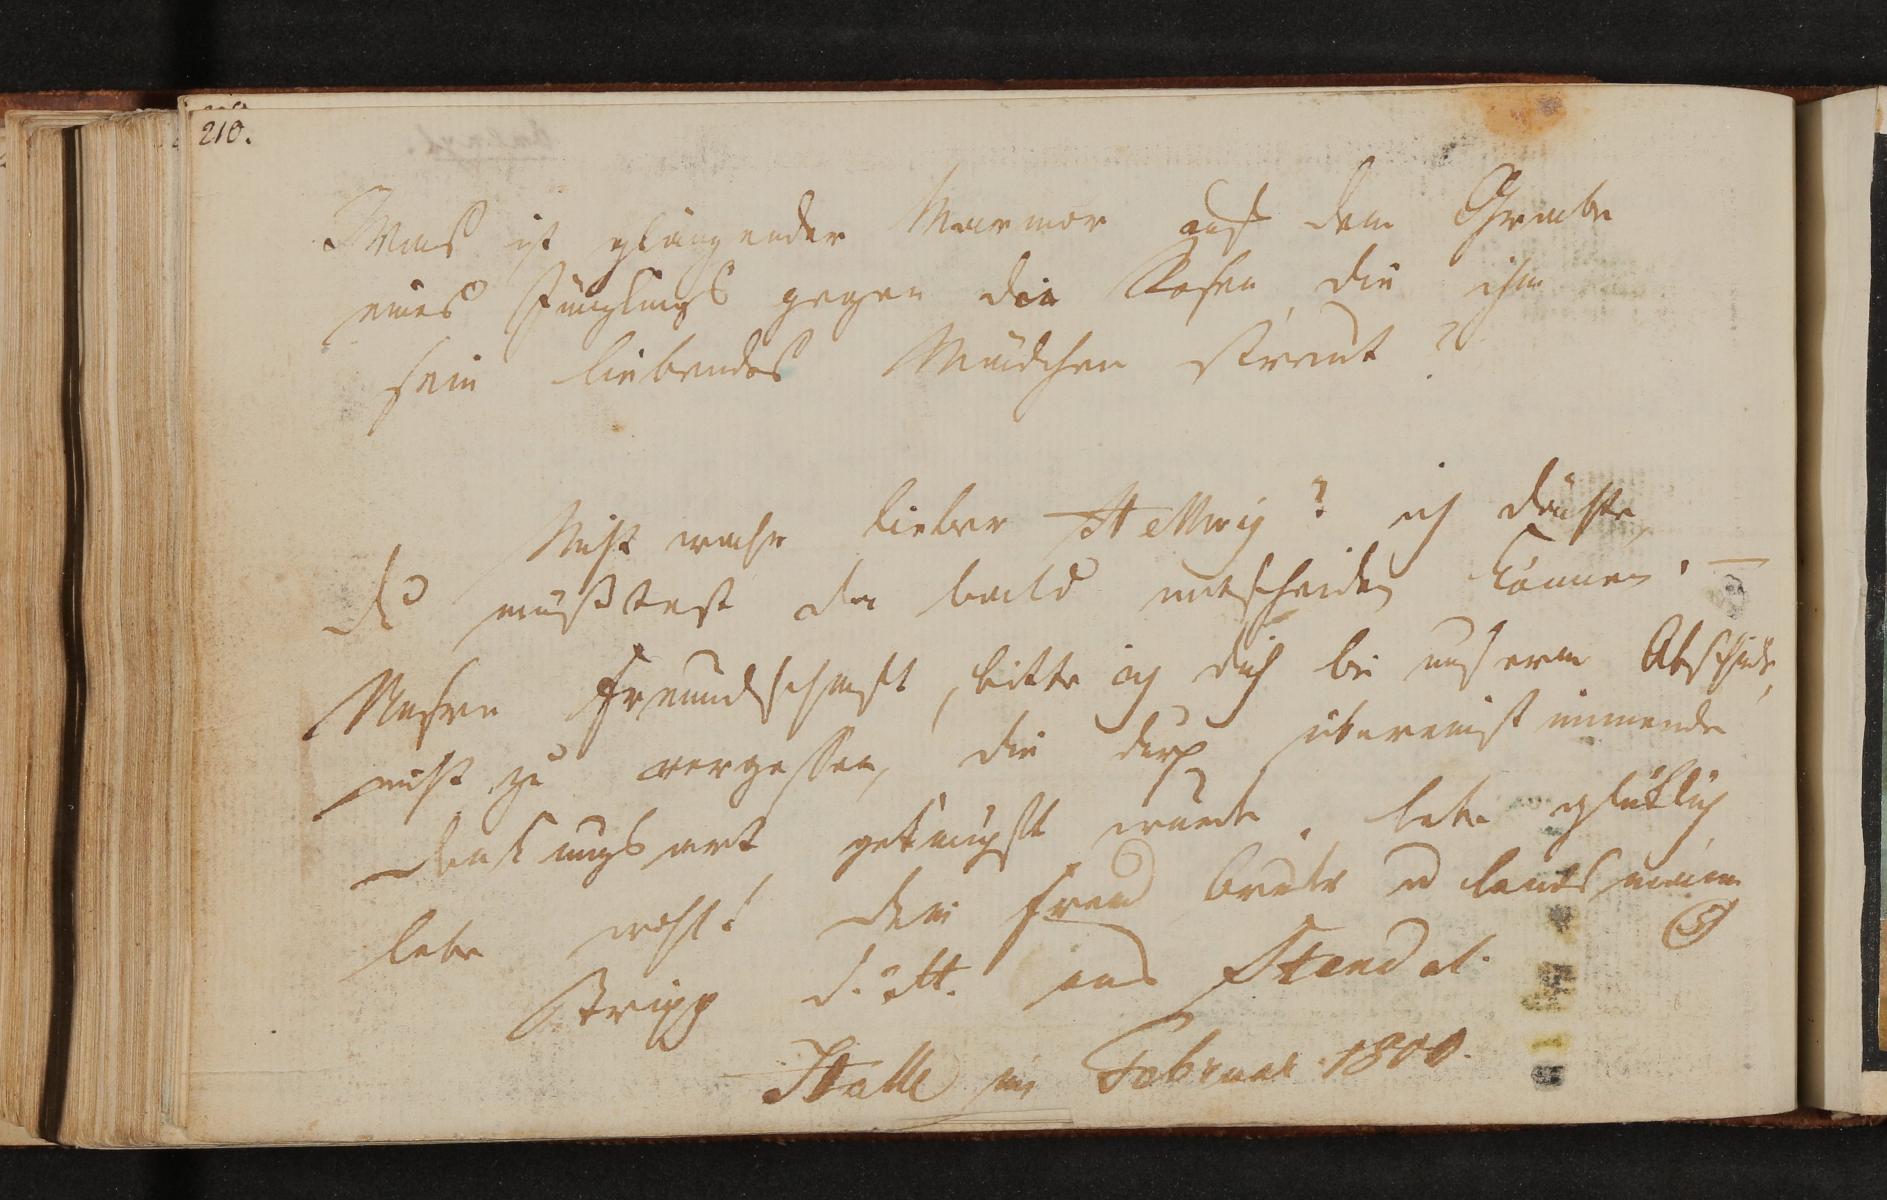 210.
Was ist glänzender Marmor auf dem Grabe
eines Jünglings gegen die Rosen, die ihm
sein liebendes Mädchen streut?
Nicht wahr lieber Hellwig? ich dächte
du müßtest da bald entscheiden können. —
Unsre Freundschaft, bitte ich dich bei unserm Abschiede,
nicht zu vergessen, die durch übereinstimmende
Denkungsart geknüpft wurde. lebe glüklich
lebe wohl! dein Freund bruder u landsmann
Stripp d. G. aus Stendal.
Halle im Februar 1800.